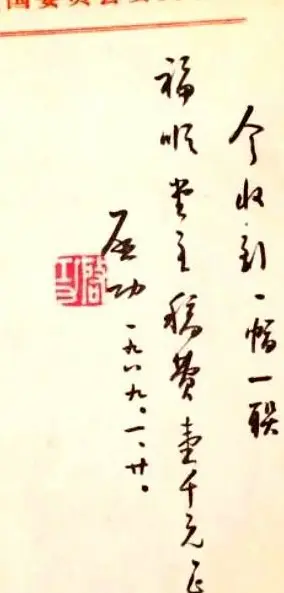 国委员会
今收到一幅一联
福顺堂主稿费壹千元正
启功
一九八九.一.廿.
启功